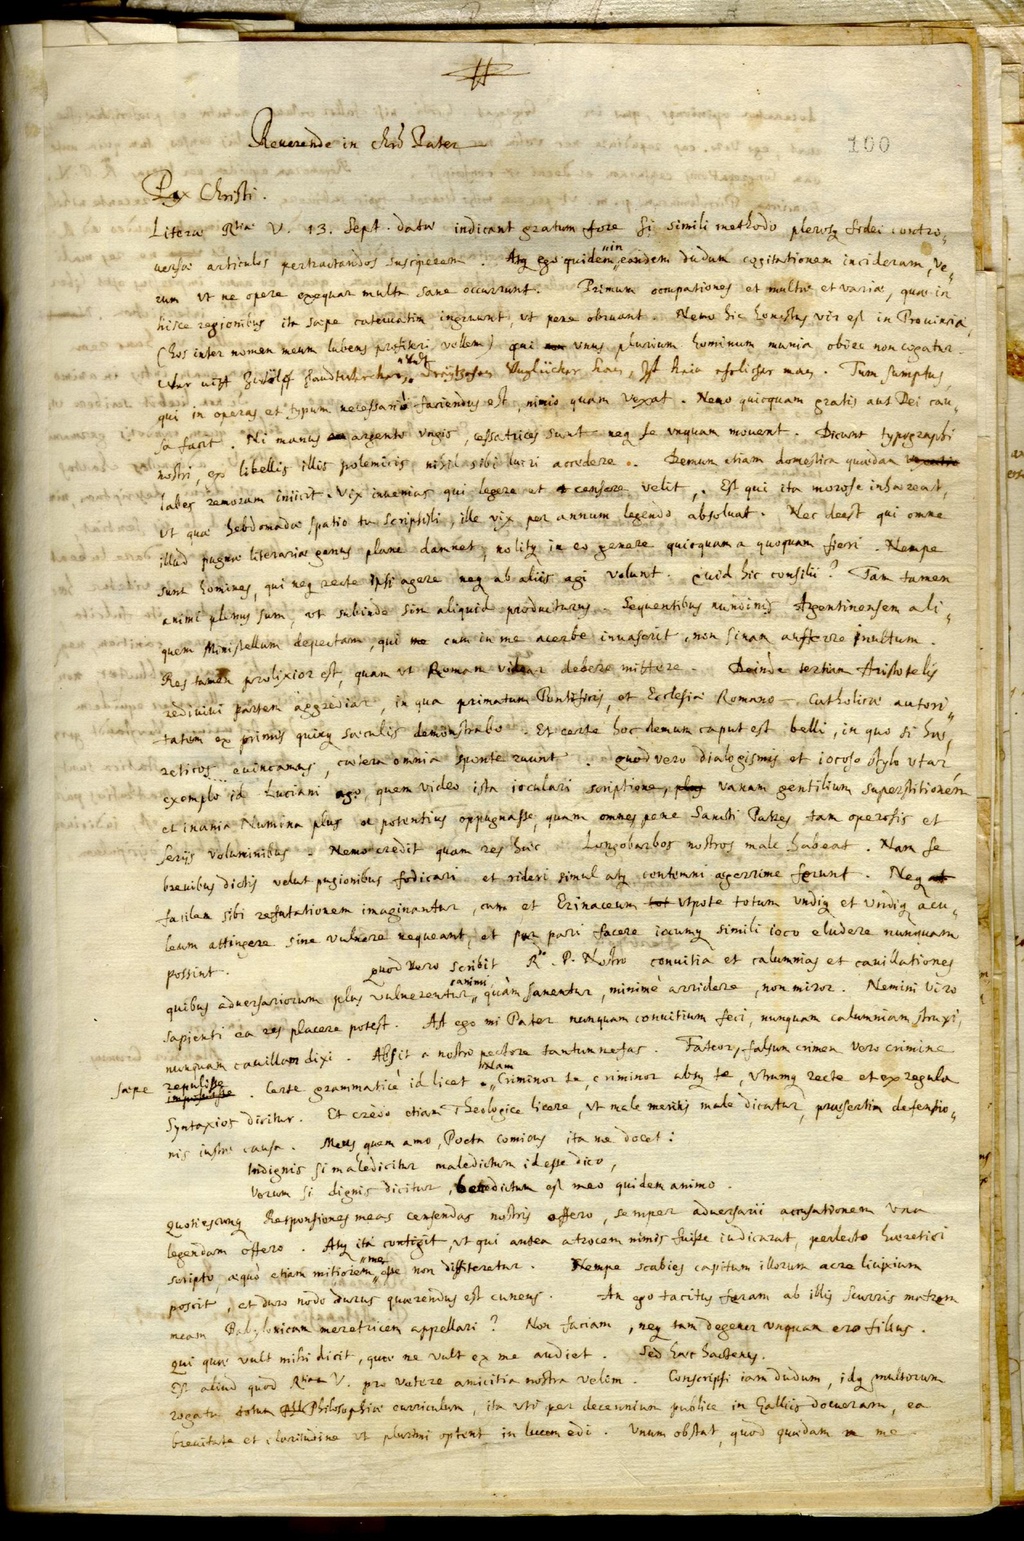 Reuerende in Chrō Pater
100
Pax Christi.
Literæ Rtiæ V. 13. Sept. datæ indicant gratum fore si simili methodo plerosq; fidei contro„
uersiæ articulos pertractandos susciperem. Atq; ego quidem in eandem dudum cogitationem incideram, ve„
rum vt ne opere exequar multa sane occurrunt. Primum occupationes et multæ et variæ, quæ in
hisce regionibus ita sæpe cateruatim ingruunt, vt pene obruant. Nemo hic honestus vir est in Prouincia,
(hos inter nomen meum lubens profiteri vellem) qui vnus plurium hominum munia obire non cogatur.
Wer nitt Zwölff Handtwercker, vndt dreytzehen Unglückher kan, ist kain ehrlicher man. Tum sumptus,
qui in operas et typum necessariò faciendus est, nimio quam vexat. Nemo quicquam gratis aut Dei cau„
sa facit. Ni manus argento vngis, cessatrices sunt neq; se vnquam mouent. Dicunt typographi
nostri, ex libellis illis polemicis nihil sibi lucri accedere. Demum etiam domestica quædam
labes remoram iniicit. Vix inuenias qui legere et censere velit,. Est qui ita morose inhæreat,
vt quæ hebdomadæ spatio tu scripsisti, ille vix per annum legendo absoluat. Nec deest qui omne
illud pugnæ literariæ genus plane damnet, nolitq; in eo genere quicquam a quoquam fieri. Nempe
sunt homines, qui neq; recte ipsi agere neq; ab aliis agi volunt. Quid hic consilii? Tam tamen
animi plenus sum, vt subinde sim aliquid producturus. Sequentibus nundinis Argentinensem ali„
quem Ministellum depectam, qui cum in me acerbe inuaserit, non sinam auferre inultum.
Res tamen prolixior est, quam vt Romam videar debere mittere. Deinde tertiam Aristotelis
rediuiui partem aggrediar, in qua primatum Pontificis, et Ecclesiæ Romano-Catholicæ autori„
tatem ex primis quinq; sæculis demonstrabo. Et certe hoc demum caput est belli, in quo si hæ„
reticos euincamus, cætera omnia sponte ruunt. Quod vero dialogismis et iocoso stylo vtar,
exemplo id Luciani ago, quem video ista ioculari scriptione, vanam gentilium superstitionem
et inania Numina plus ac potentius oppugnasse, quam omnes pene Sancti Patres tam operosis et
seriis voluminibus. Nemo credit quam res hæc Longobarbos nostros male habeat. Nam se
breuibus dictis velut pugionibus fodicari et rideri simul atq; contemni ægerrime ferunt. Neq;
facilem sibi refutationem imaginantur, cum et Erinaceum vtpote totum vndiq; et vndiq; acu„
leum attingere sine vulnere nequeant, et par pari facere iocumq; simili ioco eludere nunquam
possint. Quod vero scribit R. P. Nostro conuitia et calumnias et cauillationes
quibus aduersariorum plus vulnerentur animi, quàm sanentur, minimè arridere, non miror. Nemini viro
sapienti ea res placere potest. At ego mi Pater nunquam conuitium feci, nunquam calumniam struxi,
nunquam cauillam dixi. Absit a nostro pectore tantum nefas. Fateor, falsum crimen vero crimine
sæpe repulisse. Certe grammaticè id licet. Nam Criminor te, criminor abs te, vtrumq; recte et ex regula
Syntaxios dicitur. Et credo etiam Theologice licere, vt male meritis male dicatur, præsertim defensio„
nis iustæ causa. Meus quem amo, Poeta comicus ita me docet:
Indignis si maledicitur maledictum id esse dico,
Verum si dignis dicitur, benedictum est meo quidem animo.
Quotiescunq; Responsiones meas censendas nostris offero, semper aduersarii accusationem vna
legendam offero. Atq; ita contigit, vt qui antea atrocem nimis fuisse iudicarat, perlecto hæretici
scripto, æquò etiam mitiorem me esse non diffiteretur. Nempe scabies capitum illorum acre lixiuium
poscit, et duro nodo durus quærendus est cuneus. An ego tacitus feram ab illis scurris matrem
meam Babylonicam meretricem appellari? Non faciam, neq; tam degener vnquam ero filius.
Qui quæ vult mihi dicit, quæ ne vult ex me audiet. Sed hæc hactenus.
Est aliud quod Rtiam V. pro vetere amicitia nostra velim. Conscripsi iam dudum, idq; multorum
rogatu totum Philosophiæ curriculum, ita vti per decennium publice in Gallijs docueram, ea
breuitate et claritudine vt plurimi optent in lucem edi. Vnum obstat, quod quædam in me